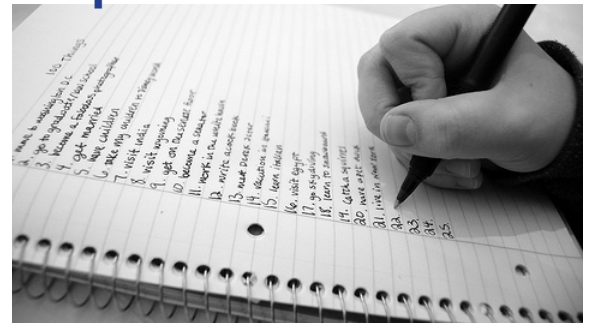 100 Things
2. move to washington D.C.
3. go to graduate/law school
4. become a fabulous photographer
5. get married
6. have children
6. take my children to Disney world
7. visit india
8. visit wyoming
9. get on treasure floor
10. become a senator
11. work in the white house
12. write a cook book
13. meet Derek Jeter
14. vacation in
15. learn indian
16. visit egypt
17. go skydiving
18. learn to
19. catch a squirrel
20. have a pet
21. live in new york
22.
23.
24.
25.